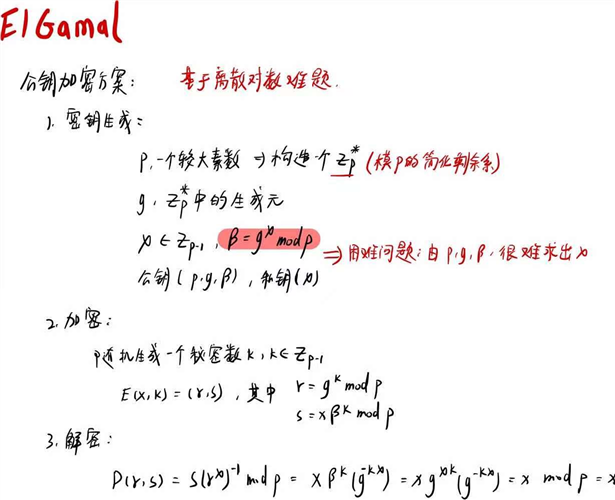 ElGamal
公钥加密方案: 基于离散对数难题.
1. 密钥生成:
p, 一个较大素数 ⇒ 构造个 Zp* (模p的简化剩余系)
g, Zp*中的生成元
x ∈ Zp-1, β = g^x mod p
⇒ 困难问题: 由 p, g, β, 很难求出 x
公钥(p, g, β), 私钥(x)
2. 加密:
随机生成一个秘密数 k, k ∈ Zp-1
E(x, k) = (r, s), 其中 r = g^k mod p
s = x β^k mod p
3. 解密:
D(r, s) = s(r^x)^-1 mod p = x β^k (g^-kx) = x g^xk (g^-kx) = x mod p = x